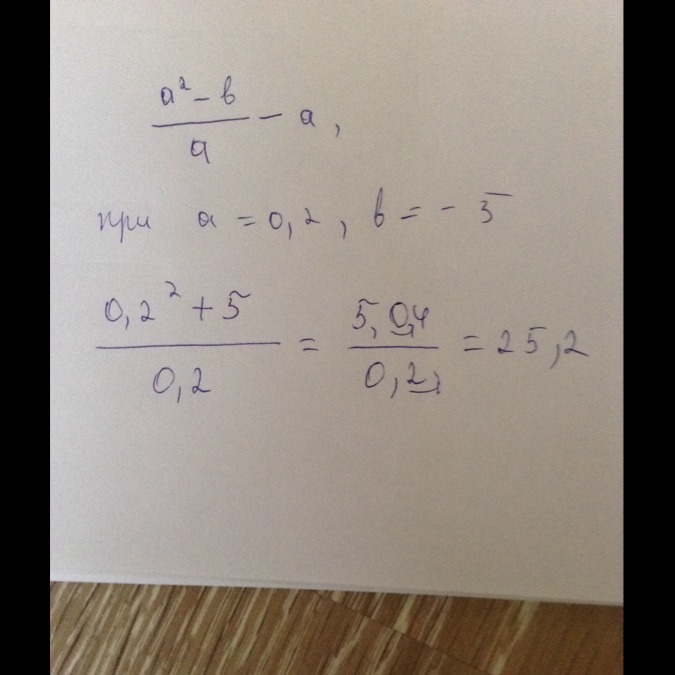 a² − b
a
− a,
при a = 0,2, b = − 5
0,2² + 5
0,2
= 5,04
0,2
= 25,2